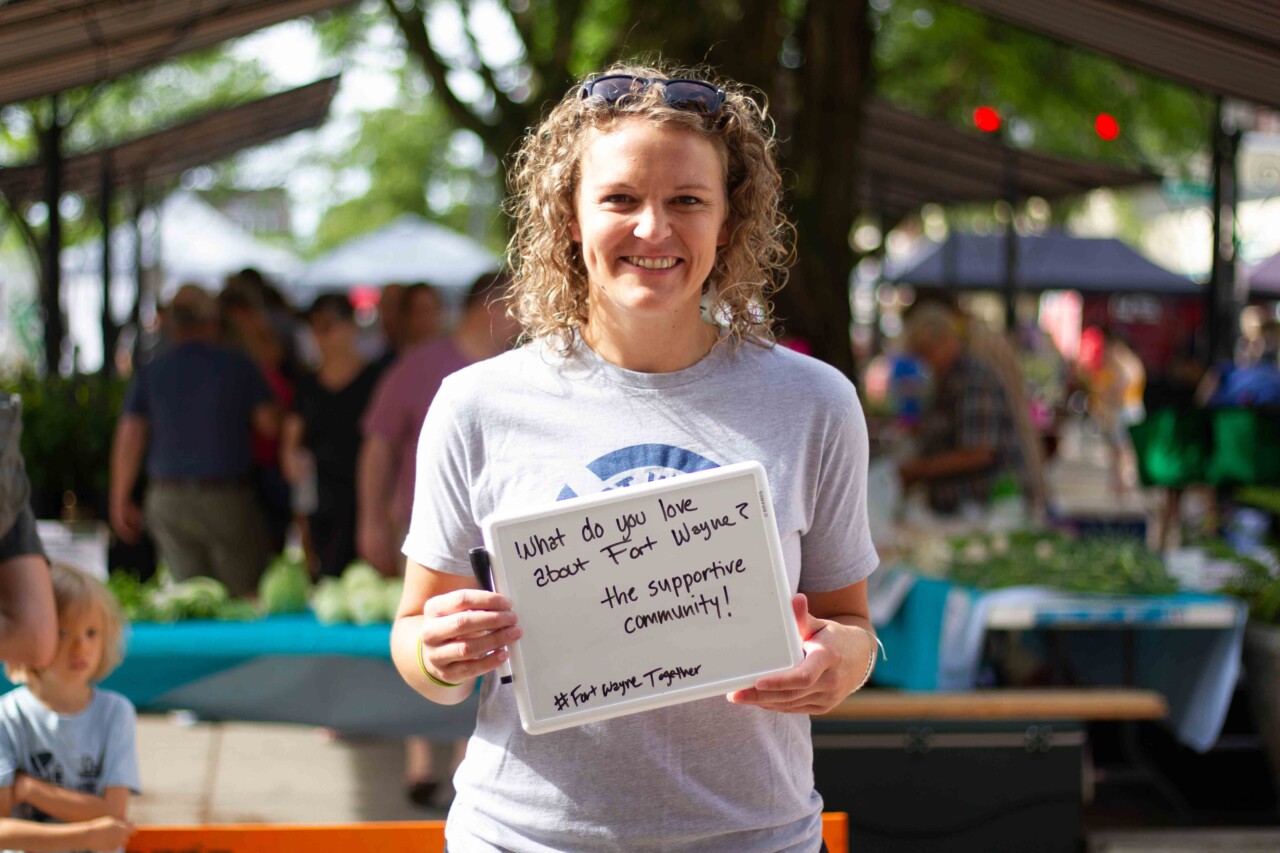 What do you love
about Fort Wayne?
the supportive
community!
#Fort Wayne Together